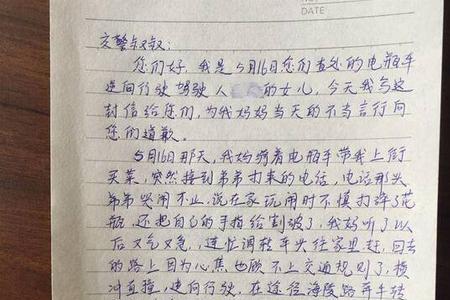 DATE
交警叔叔：
您们好，我是5月16日您们查处的电瓶车
逆向行驶驾驶人 的女儿，今天我写这
封信给您们，为我妈妈当天的不当言行向
您们道歉。
5月16日那天，我妈骑着电瓶车带我上街
买菜，突然接到弟弟打来的电话，电话那头
弟弟哭闹不止，说在家玩闹时不慎打碎了花
瓶，还把自己的手指给割破了，我妈听了以
后又气又急，连忙调转车头往家里赶，回去
的路上因为心焦也顾不上交通规则了，横
冲直撞，逆向行驶，在途径海陵路再车转